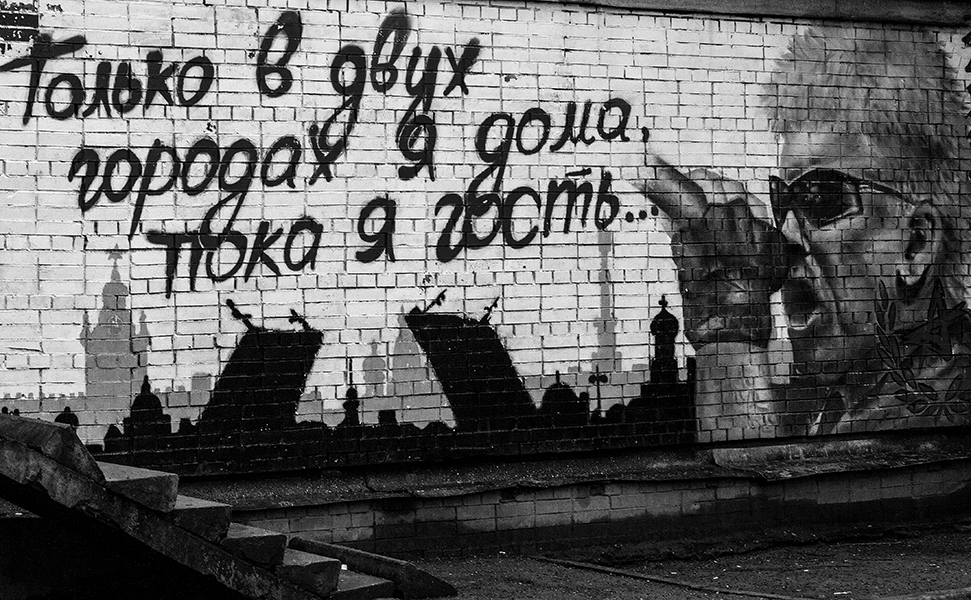 Только в двух
городах я дома,
пока я гость...